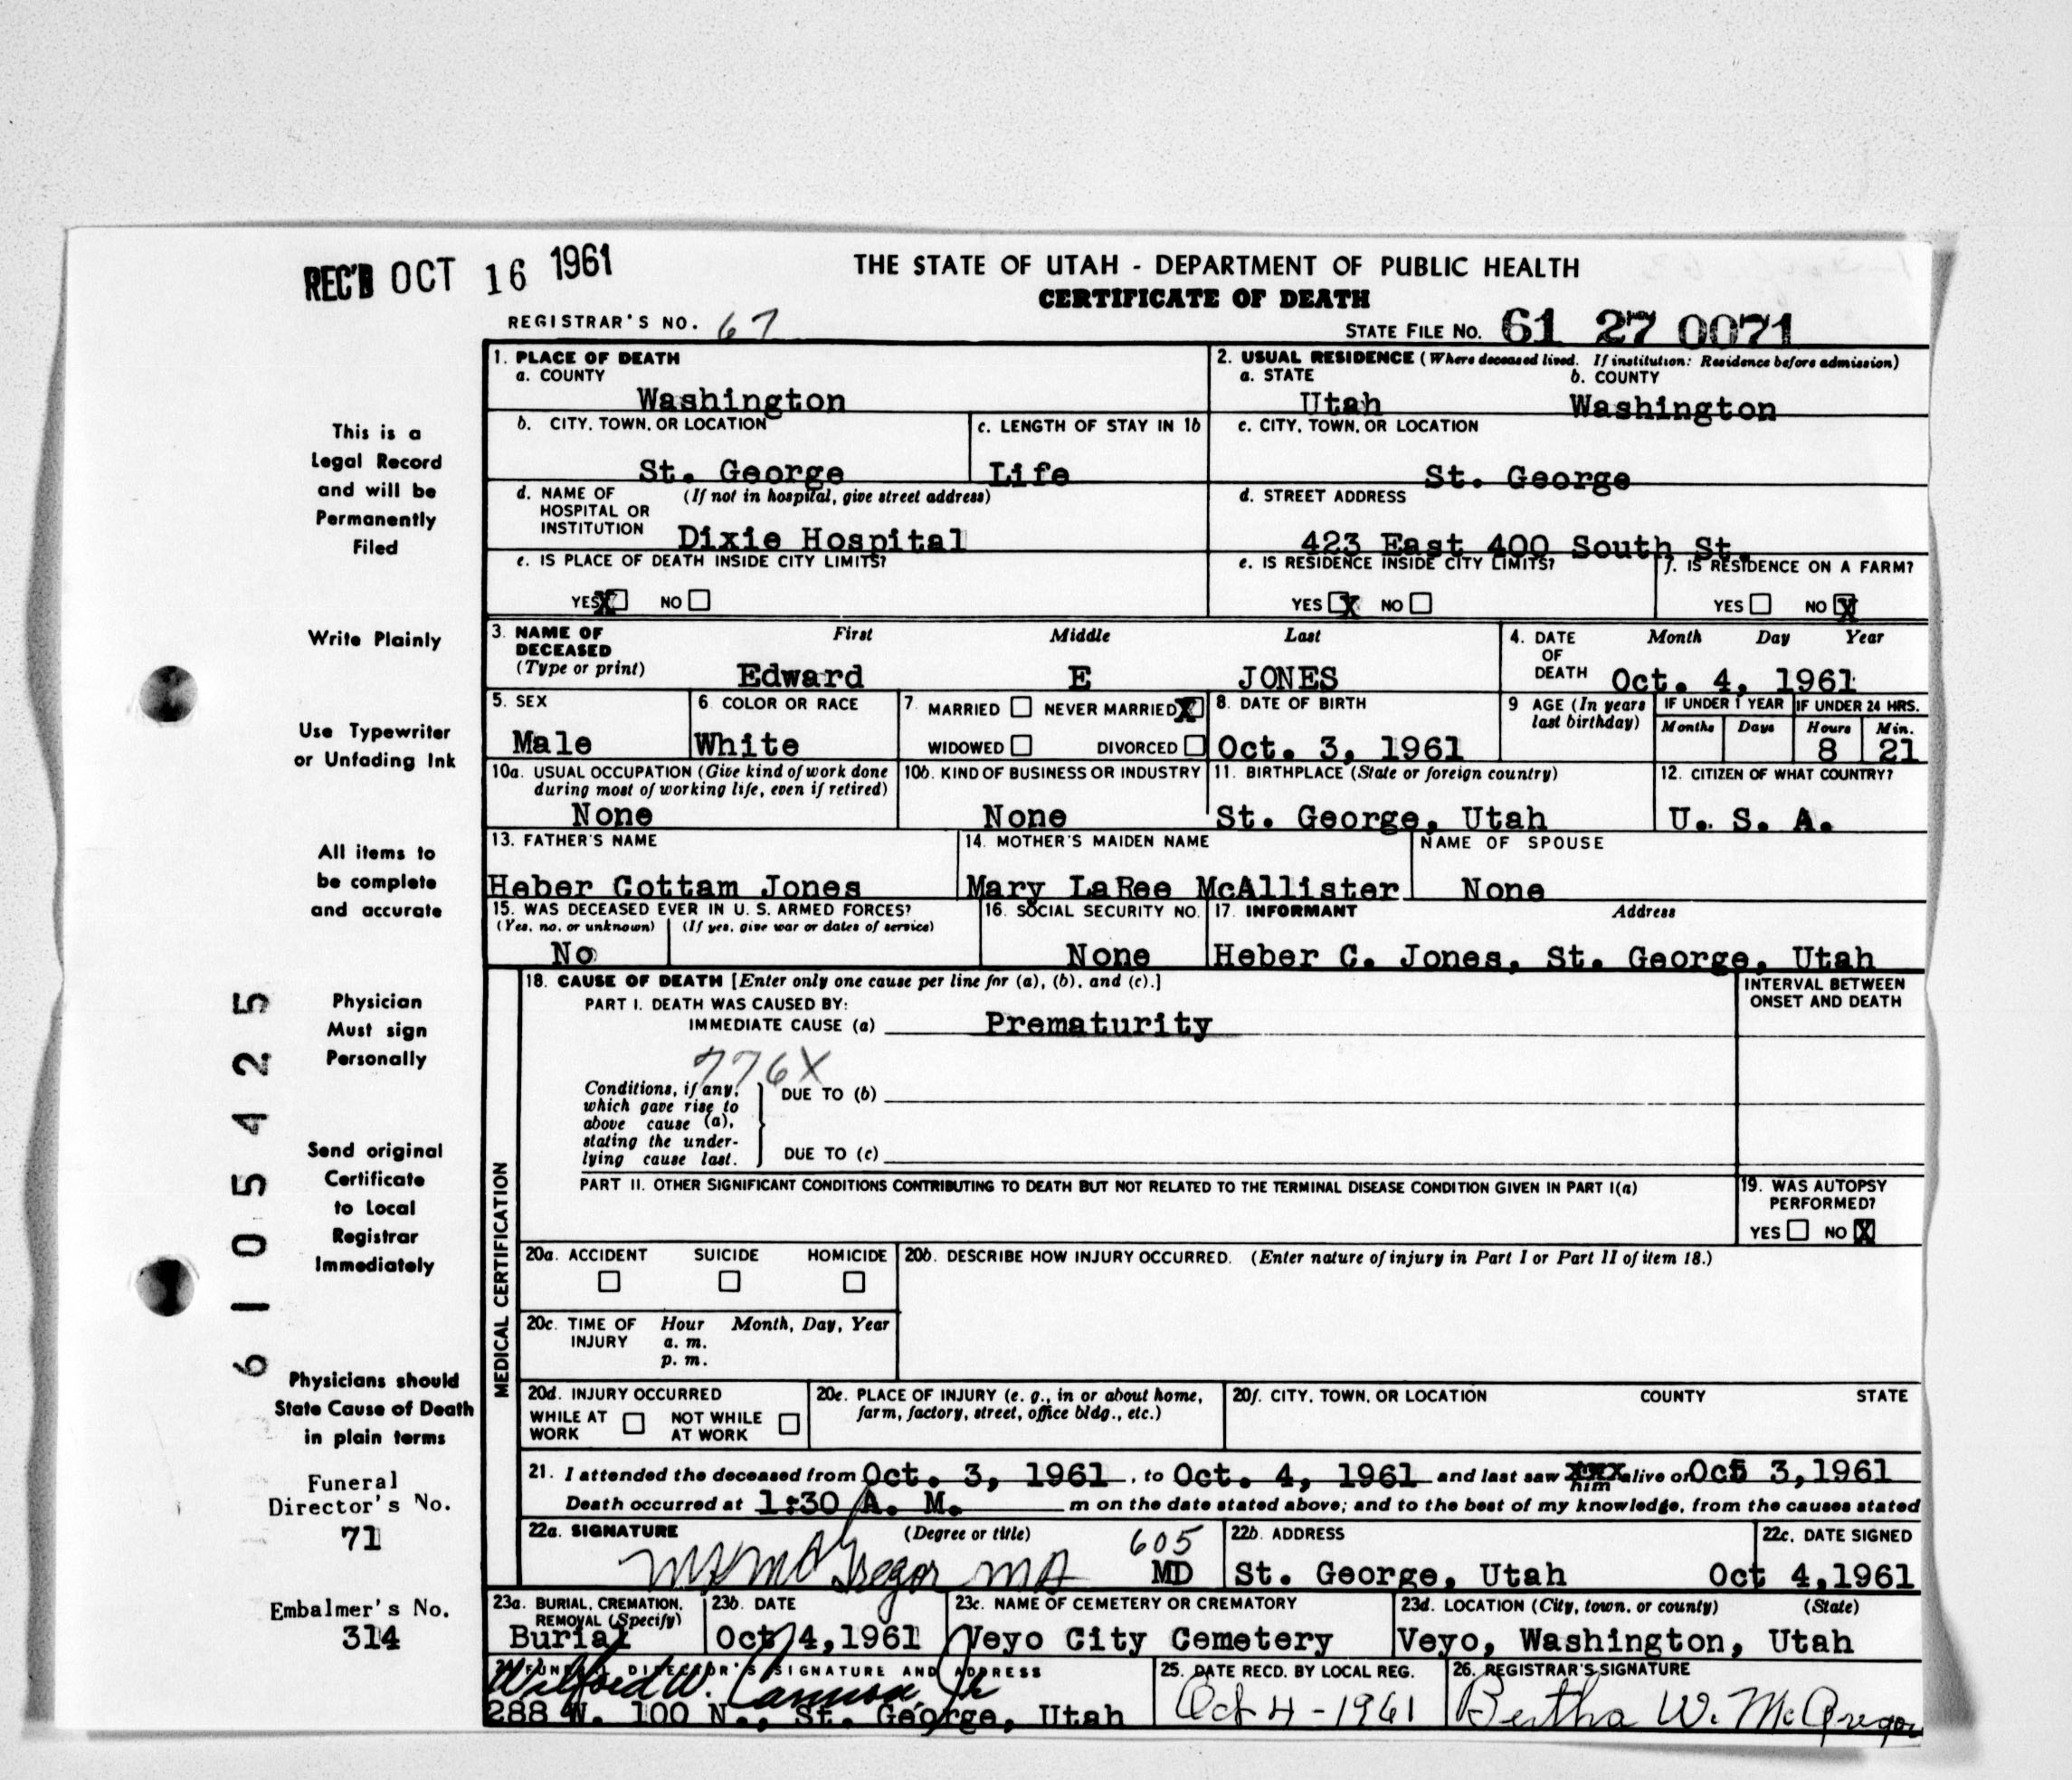 REC'D OCT 16 1961
THE STATE OF UTAH - DEPARTMENT OF PUBLIC HEALTH
CERTIFICATE OF DEATH
REGISTRAR'S NO. 67
STATE FILE NO. 61 27 0071
1. PLACE OF DEATH
a. COUNTY
Washington
2. USUAL RESIDENCE (Where deceased lived. If institution: Residence before admission)
a. STATE b. COUNTY
Utah Washington
b. CITY, TOWN, OR LOCATION
St. George
c. LENGTH OF STAY IN 1b
Life
c. CITY, TOWN, OR LOCATION
St. George
d. NAME OF (If not in hospital, give street address)
HOSPITAL OR
INSTITUTION Dixie Hospital
d. STREET ADDRESS
423 East 400 South St.
e. IS PLACE OF DEATH INSIDE CITY LIMITS?
YES X NO
e. IS RESIDENCE INSIDE CITY LIMITS?
YES X NO
f. IS RESIDENCE ON A FARM?
YES NO X
3. NAME OF First Middle Last
DECEASED
(Type or print) Edward E JONES
4. DATE Month Day Year
OF
DEATH Oct. 4, 1961
5. SEX
Male
6. COLOR OR RACE
White
7. MARRIED NEVER MARRIED X
WIDOWED DIVORCED
8. DATE OF BIRTH
Oct. 3, 1961
9 AGE (In years
last birthday)
IF UNDER 1 YEAR IF UNDER 24 HRS.
Months Days Hours Min.
8 21
10a. USUAL OCCUPATION (Give kind of work done
during most of working life, even if retired)
None
10b. KIND OF BUSINESS OR INDUSTRY
None
11. BIRTHPLACE (State or foreign country)
St. George, Utah
12. CITIZEN OF WHAT COUNTRY?
U. S. A.
13. FATHER'S NAME
Heber Cottam Jones
14. MOTHER'S MAIDEN NAME
Mary LaRee McAllister
NAME OF SPOUSE
None
15. WAS DECEASED EVER IN U. S. ARMED FORCES?
(Yes, no, or unknown) (If yes, give war or dates of service)
No
16. SOCIAL SECURITY NO.
None
17. INFORMANT Address
Heber C. Jones, St. George, Utah
MEDICAL CERTIFICATION
18. CAUSE OF DEATH [Enter only one cause per line for (a), (b), and (c).]
PART I. DEATH WAS CAUSED BY:
IMMEDIATE CAUSE (a) Prematurity
776X
Conditions, if any,
which gave rise to
above cause (a),
stating the under-
lying cause last.
DUE TO (b)
DUE TO (c)
INTERVAL BETWEEN
ONSET AND DEATH
PART II. OTHER SIGNIFICANT CONDITIONS CONTRIBUTING TO DEATH BUT NOT RELATED TO THE TERMINAL DISEASE CONDITION GIVEN IN PART I(a)
19. WAS AUTOPSY
PERFORMED?
YES NO X
20a. ACCIDENT SUICIDE HOMICIDE
20b. DESCRIBE HOW INJURY OCCURRED. (Enter nature of injury in Part I or Part II of item 18.)
20c. TIME OF Hour Month, Day, Year
INJURY a. m.
p. m.
20d. INJURY OCCURRED
WHILE AT NOT WHILE
WORK AT WORK
20e. PLACE OF INJURY (e. g., in or about home,
farm, factory, street, office bldg., etc.)
20f. CITY, TOWN, OR LOCATION COUNTY STATE
21. I attended the deceased from Oct. 3, 1961, to Oct. 4, 1961 and last saw him alive on Oct 3,1961
Death occurred at 1:30 A. M. m on the date stated above; and to the best of my knowledge, from the causes stated
22a. SIGNATURE (Degree or title) 605
McGregor MD MD
22b. ADDRESS
St. George, Utah
22c. DATE SIGNED
Oct 4,1961
23a. BURIAL, CREMATION,
REMOVAL (Specify)
Burial
23b. DATE
Oct 4,1961
23c. NAME OF CEMETERY OR CREMATORY
Veyo City Cemetery
23d. LOCATION (City, town, or county) (State)
Veyo, Washington, Utah
24. FUNERAL DIRECTOR'S SIGNATURE AND ADDRESS
Wilford W. Cannon, Jr
288 W. 100 N., St. George, Utah
25. DATE RECD. BY LOCAL REG.
Oct 4-1961
26. REGISTRAR'S SIGNATURE
Bertha W. McGregor
This is a
Legal Record
and will be
Permanently
Filed
Write Plainly
Use Typewriter
or Unfading Ink
All items to
be complete
and accurate
Physician
Must sign
Personally
Send original
Certificate
to Local
Registrar
Immediately
Physicians should
State Cause of Death
in plain terms
Funeral
Director's No.
71
Embalmer's No.
314
6105425